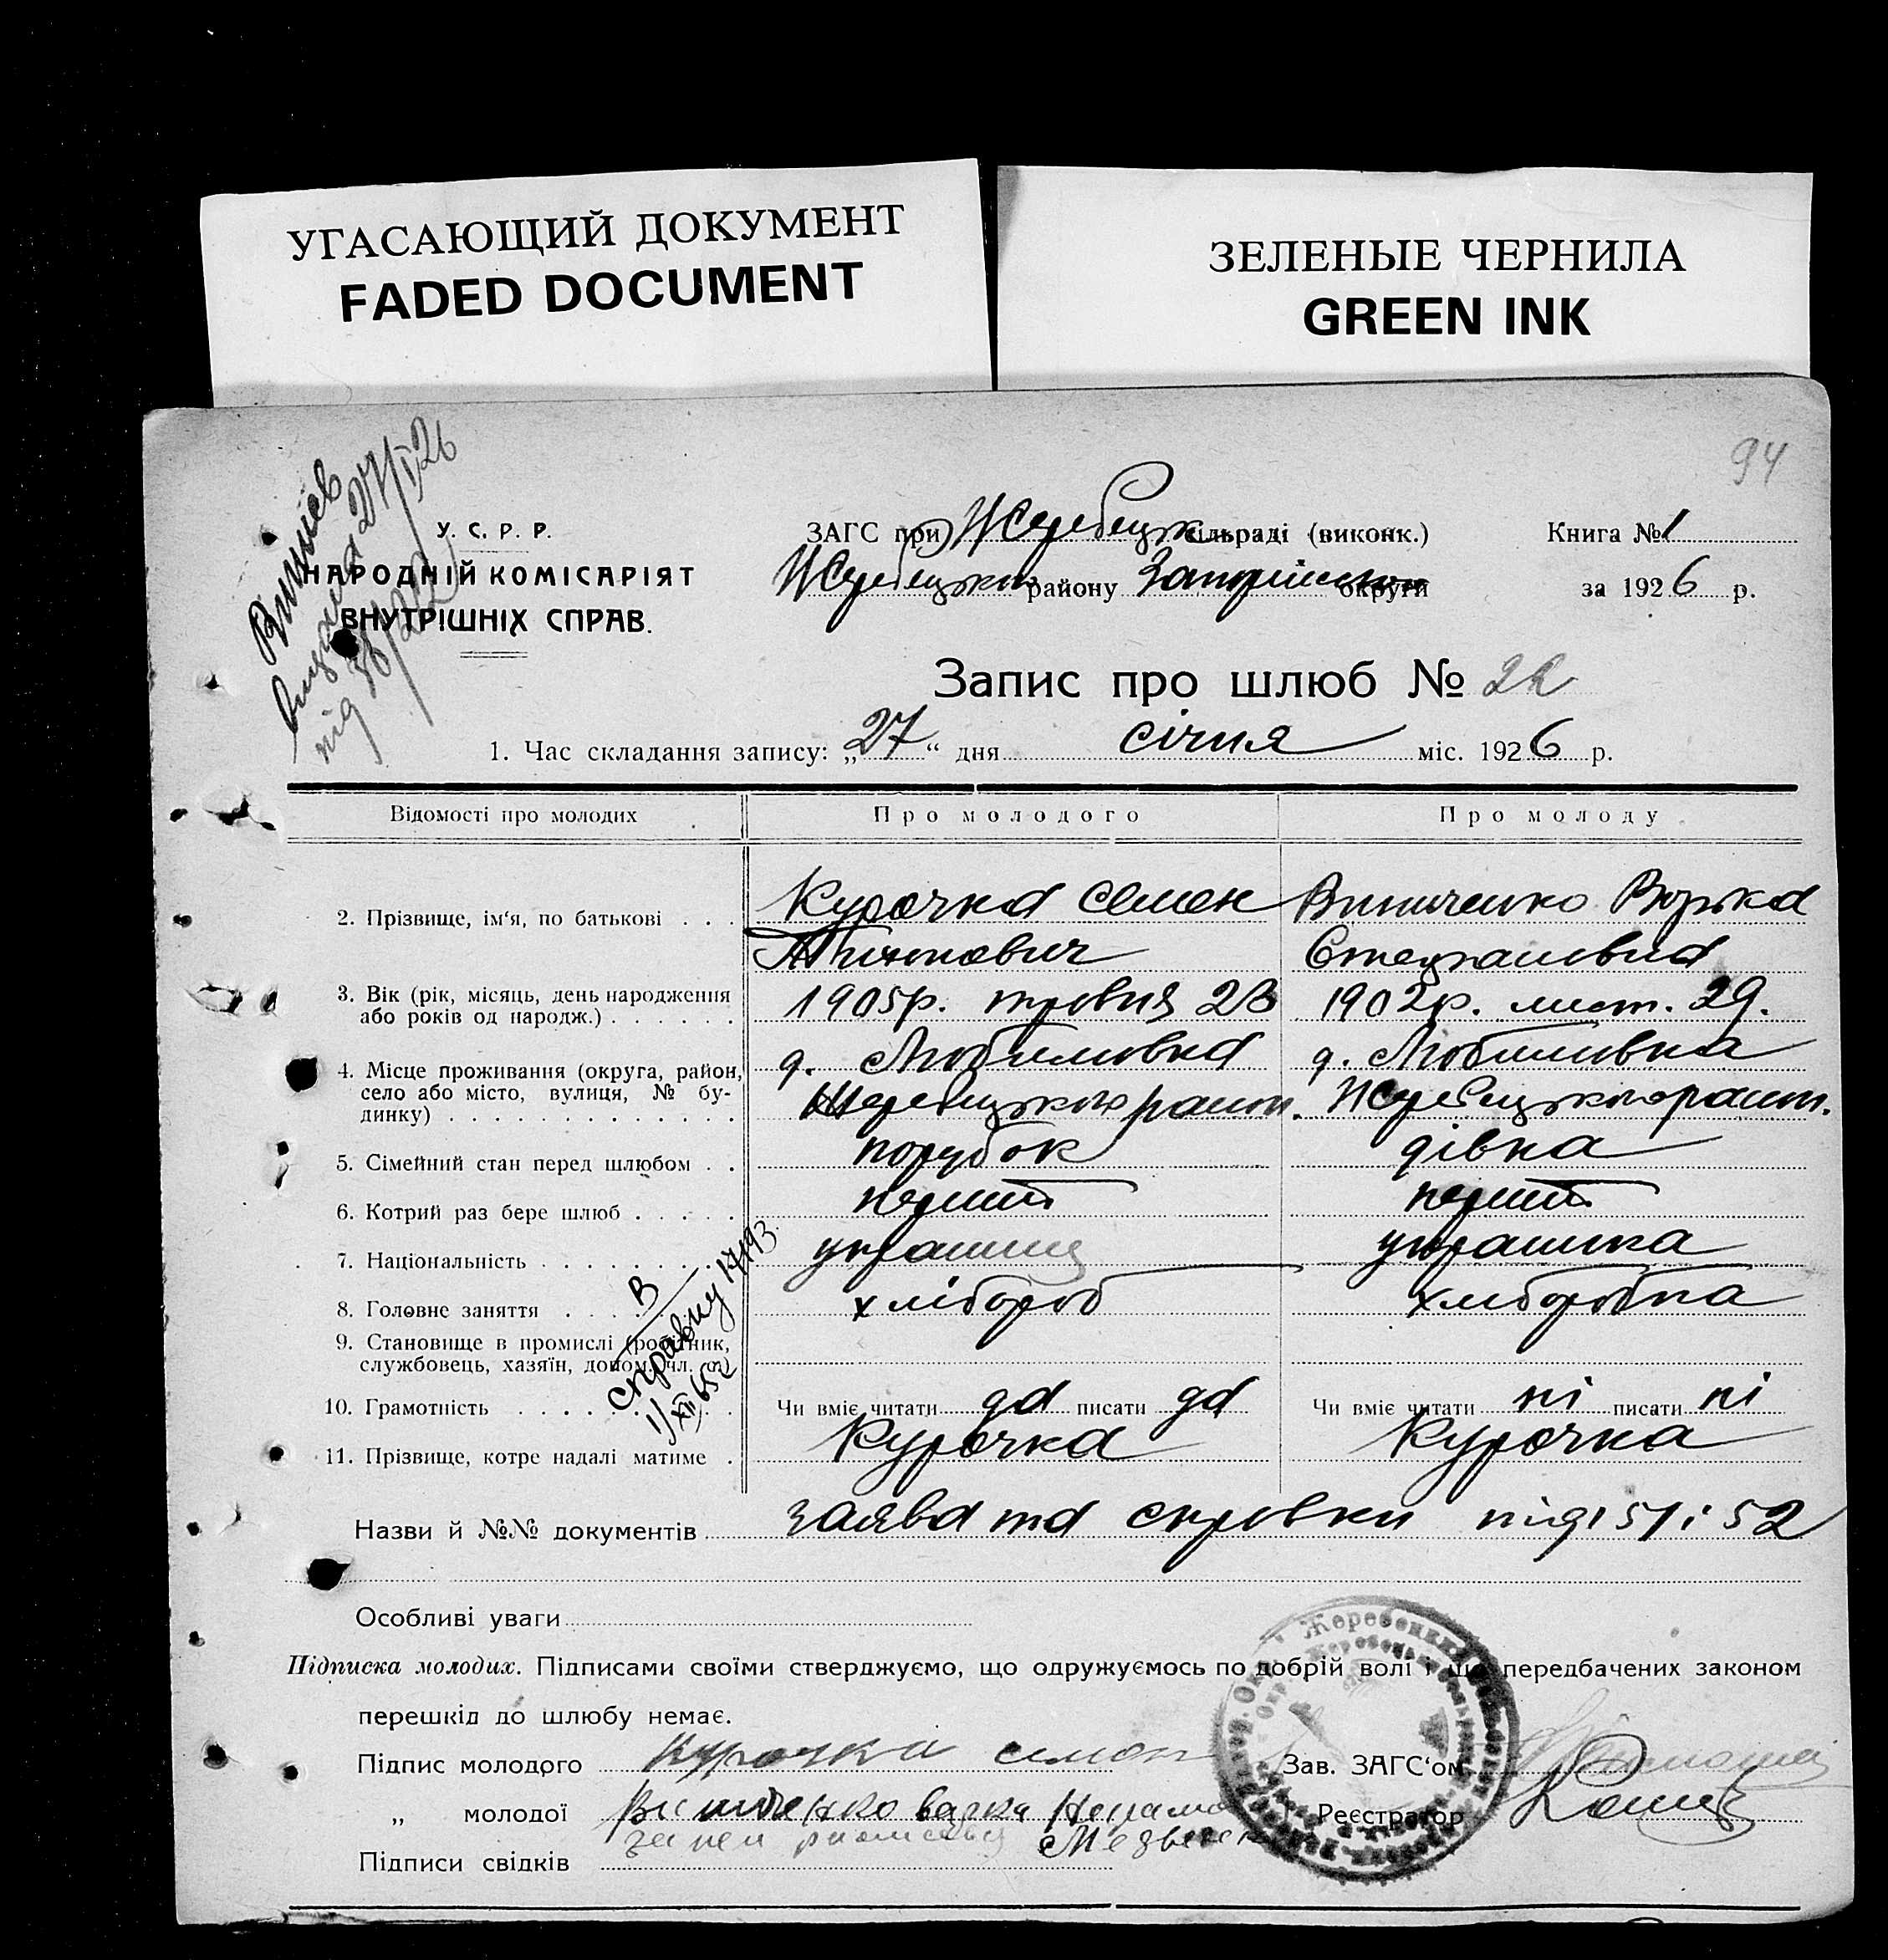 УГАСАЮЩИЙ ДОКУМЕНТ
FADED DOCUMENT
ЗЕЛЕНЫЕ ЧЕРНИЛА
GREEN INK
94
27/I 26
У. С. Р. Р.
НАРОДНІЙ КОМІСАРІЯТ
ВНУТРІШНІХ СПРАВ.
ЗАГС при Жеребецьк сільраді (виконк.)
Книга № 1
Жеребецького району Запоріжської округи
за 1926 р.
Запис про шлюб № 22
1. Час складання запису: „27“ дня січня міс. 1926 р.
Відомості про молодих
Про молодого
Про молоду
2. Прізвище, ім‘я, по батькові . . .
Курочка Семен
Винниченко
Степановна
3. Вік (рік, місяць, день народження
або років од народж.) . . . . . .
1905р. травня 23
1902р. лист. 29.
4. Місце проживання (округа, район,
село або місто, вулиця, № бу-
динку) . . . . . . . . . . . . .
д. Любимовка
Жеребецького району.
д. Любимовка
Жеребецького району.
5. Сімейний стан перед шлюбом . .
парубок
дівка
6. Котрий раз бере шлюб . . . . .
перший
перший
7. Національність . . . . . . . . .
українець
українка
8. Головне заняття . . . .
хлібороб
хліборобка
9. Становище в промислі (робітник,
службовець, хазяїн, допом. чл. с.)
10. Грамотність . . . .
Чи вміє читати да писати да
Чи вміє читати ні писати ні
11. Прізвище, котре надалі матиме .
Курочка
Курочка
В справку 17193
11/XII 65
Назви й №№ документів заява та справки під 51 і 52
Особливі уваги
Підписка молодих. Підписами своїми стверджуємо, що одружуємось по добрій волі і що передбачених законом
перешкід до шлюбу немає.
Підпис молодого Курочка Семен
Зав. ЗАГС‘ом
„ молодої
Реєстратор
Підписи свідків